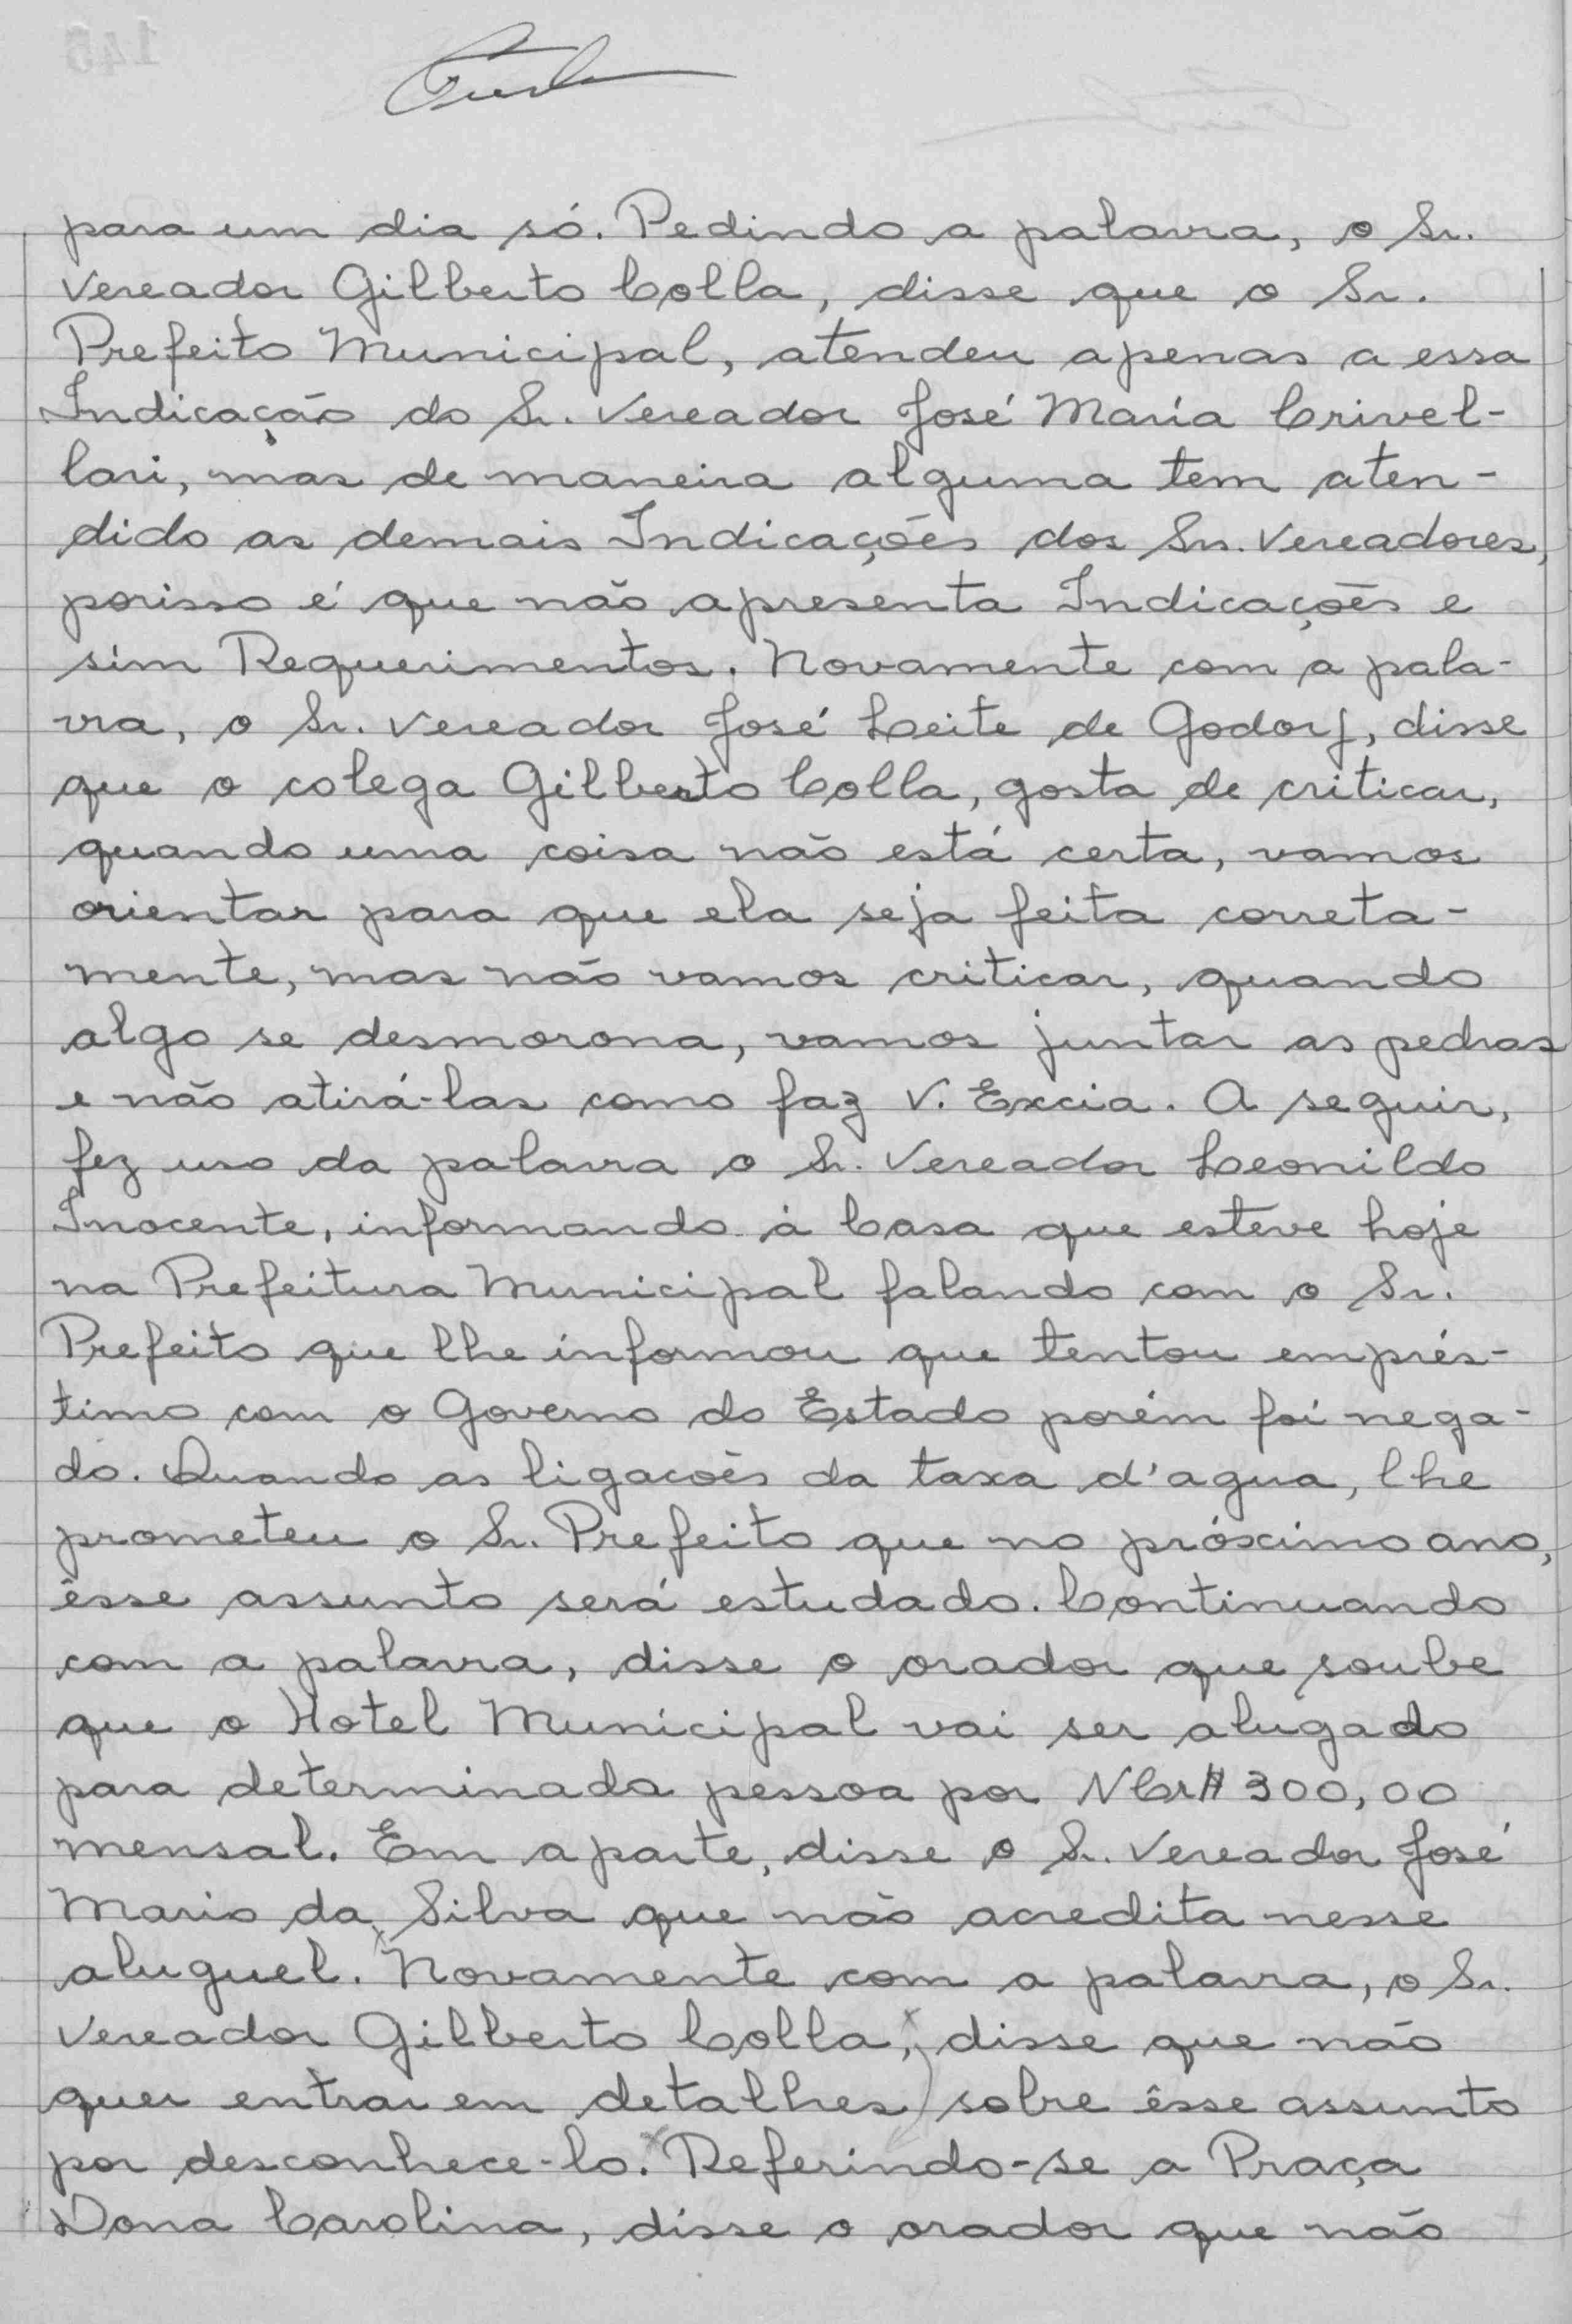 para um dia só. Pedindo a palavra, o Sr.
Vereador Gilberto Colla, disse que o Sr.
Prefeito Municipal, atendeu apenas a essa
Indicação do Sr. Vereador José Maria Crivel-
lari, mas de maneira alguma tem aten-
dido as demais Indicações dos Srs. Vereadores,
porisso é que não apresenta Indicações e
sim Requerimentos. Novamente com a pala-
vra, o Sr. Vereador José Leite de Godoy, disse
que o colega Gilberto Colla, gosta de criticar,
quando uma coisa não está certa, vamos
orientar para que ela seja feita correta-
mente, mas não vamos criticar, quando
algo se desmorona, vamos juntar as pedras
e não atirá-las como faz V. Excia. A seguir,
fez uso da palavra o Sr. Vereador Leonildo
Inocente, informando à Casa que esteve hoje
na Prefeitura Municipal falando com o Sr.
Prefeito que lhe informou que tentou emprés-
timo com o Governo do Estado porém foi nega-
do. Quando as ligacões da taxa d'agua, lhe
prometeu o Sr. Prefeito que no próximo ano,
êsse assunto será estudado. Continuando
com a palavra, disse o orador que soube
que o Hotel Municipal vai ser alugado
para determinada pessoa por NCr$ 300,00
mensal. Em aparte, disse o Sr. Vereador José
Mario da Silva que não acredita nesse
aluguel. Novamente com a palavra, o Sr.
Vereador Gilberto Colla, disse que não
quer entrar em detalhes sobre êsse assunto
por desconhece-lo. Referindo-se a Praça
Dona Carolina, disse o orador que não